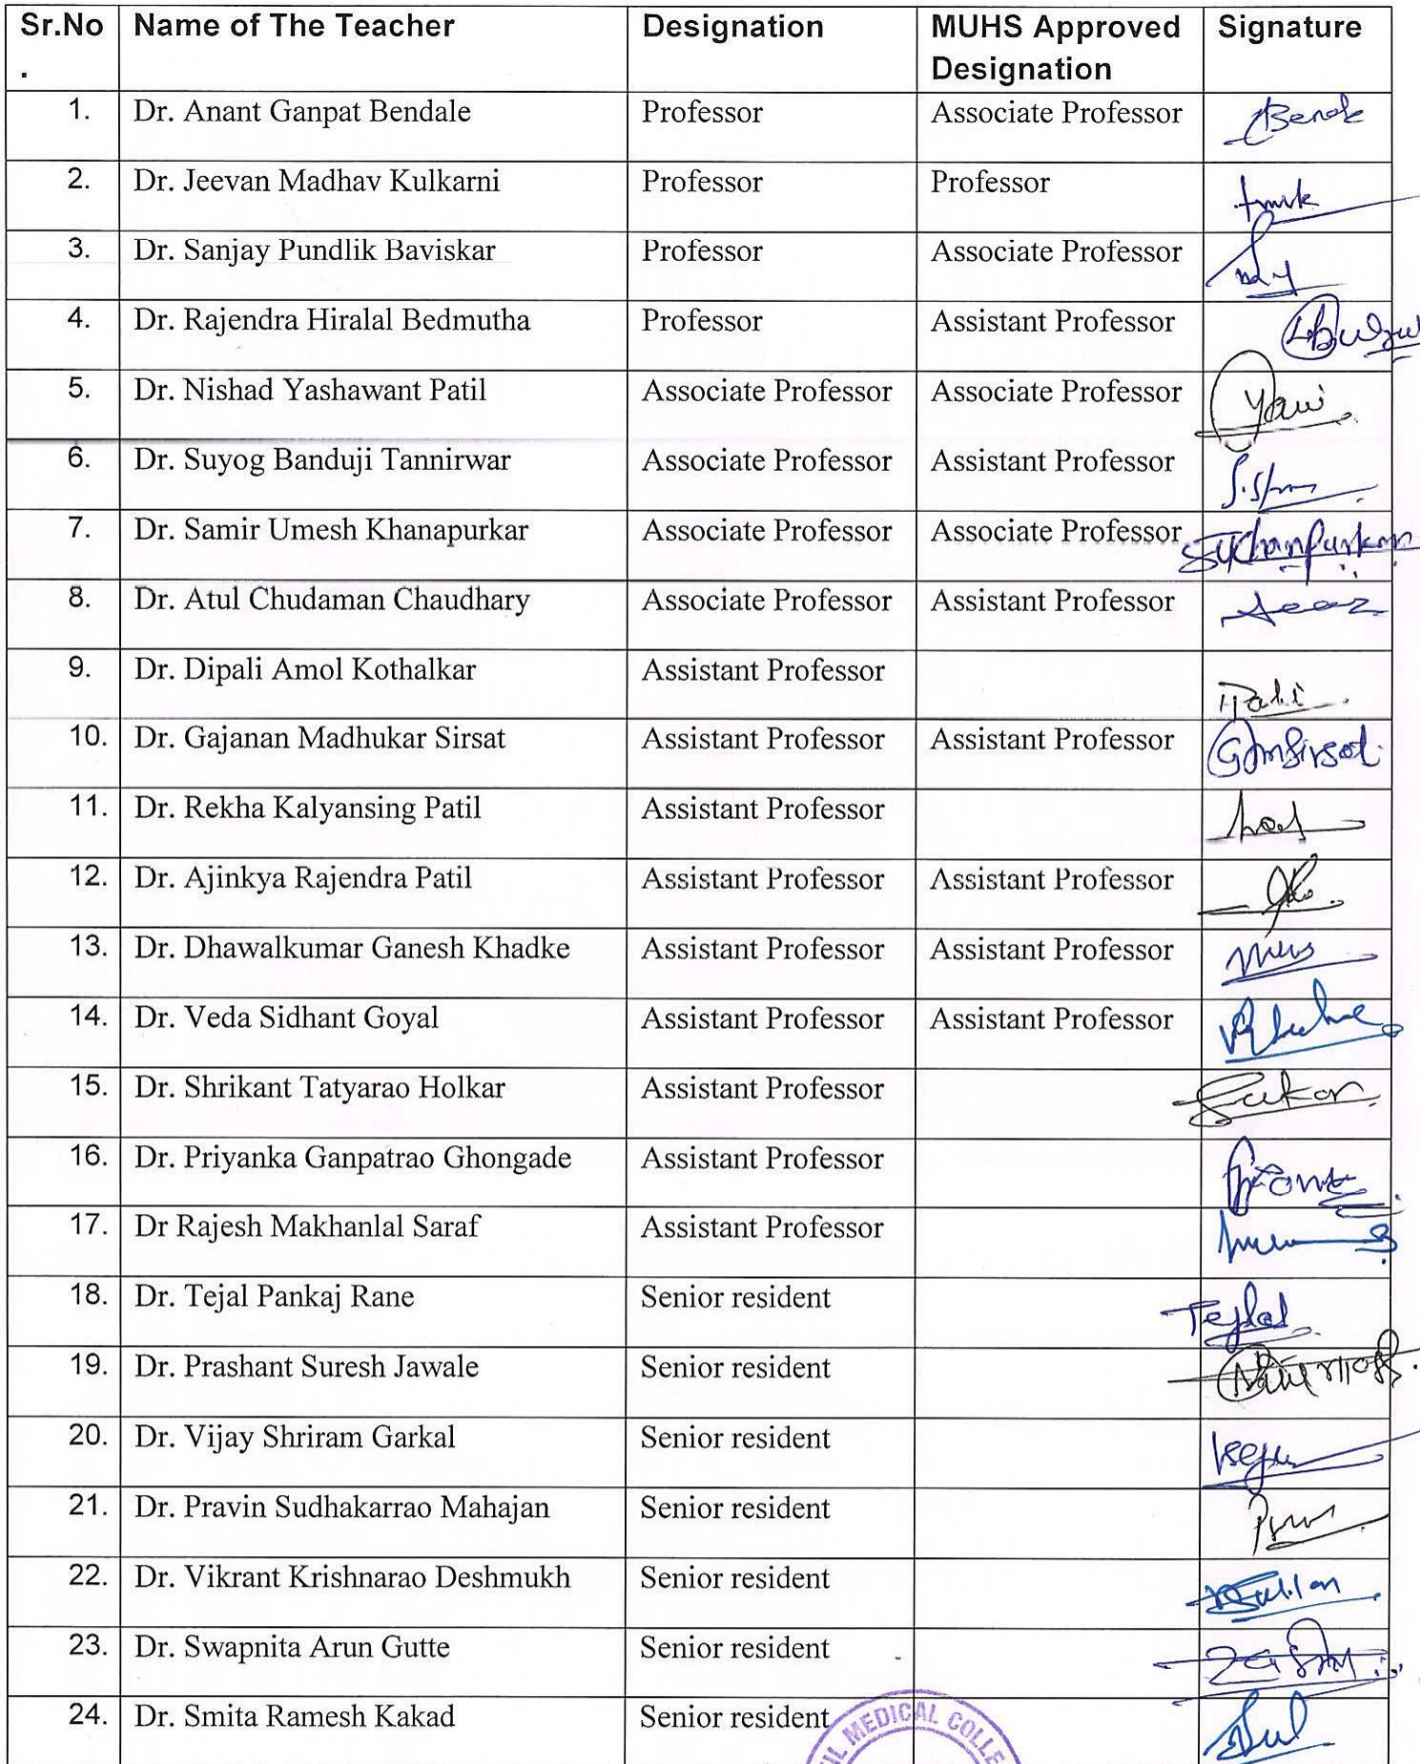 Sr.No Name of The Teacher Designation MUHS Approved Signature
. Designation
1. Dr. Anant Ganpat Bendale Professor Associate Professor
2. Dr. Jeevan Madhav Kulkarni Professor Professor
3. Dr. Sanjay Pundlik Baviskar Professor Associate Professor
4. Dr. Rajendra Hiralal Bedmutha Professor Assistant Professor
5. Dr. Nishad Yashawant Patil Associate Professor Associate Professor
6. Dr. Suyog Banduji Tannirwar Associate Professor Assistant Professor
7. Dr. Samir Umesh Khanapurkar Associate Professor Associate Professor
8. Dr. Atul Chudaman Chaudhary Associate Professor Assistant Professor
9. Dr. Dipali Amol Kothalkar Assistant Professor
10. Dr. Gajanan Madhukar Sirsat Assistant Professor Assistant Professor GMSirsat
11. Dr. Rekha Kalyansing Patil Assistant Professor
12. Dr. Ajinkya Rajendra Patil Assistant Professor Assistant Professor
13. Dr. Dhawalkumar Ganesh Khadke Assistant Professor Assistant Professor
14. Dr. Veda Sidhant Goyal Assistant Professor Assistant Professor
15. Dr. Shrikant Tatyarao Holkar Assistant Professor
16. Dr. Priyanka Ganpatrao Ghongade Assistant Professor
17. Dr Rajesh Makhanlal Saraf Assistant Professor
18. Dr. Tejal Pankaj Rane Senior resident
19. Dr. Prashant Suresh Jawale Senior resident
20. Dr. Vijay Shriram Garkal Senior resident
21. Dr. Pravin Sudhakarrao Mahajan Senior resident
22. Dr. Vikrant Krishnarao Deshmukh Senior resident
23. Dr. Swapnita Arun Gutte Senior resident
24. Dr. Smita Ramesh Kakad Senior resident
MEDICAL